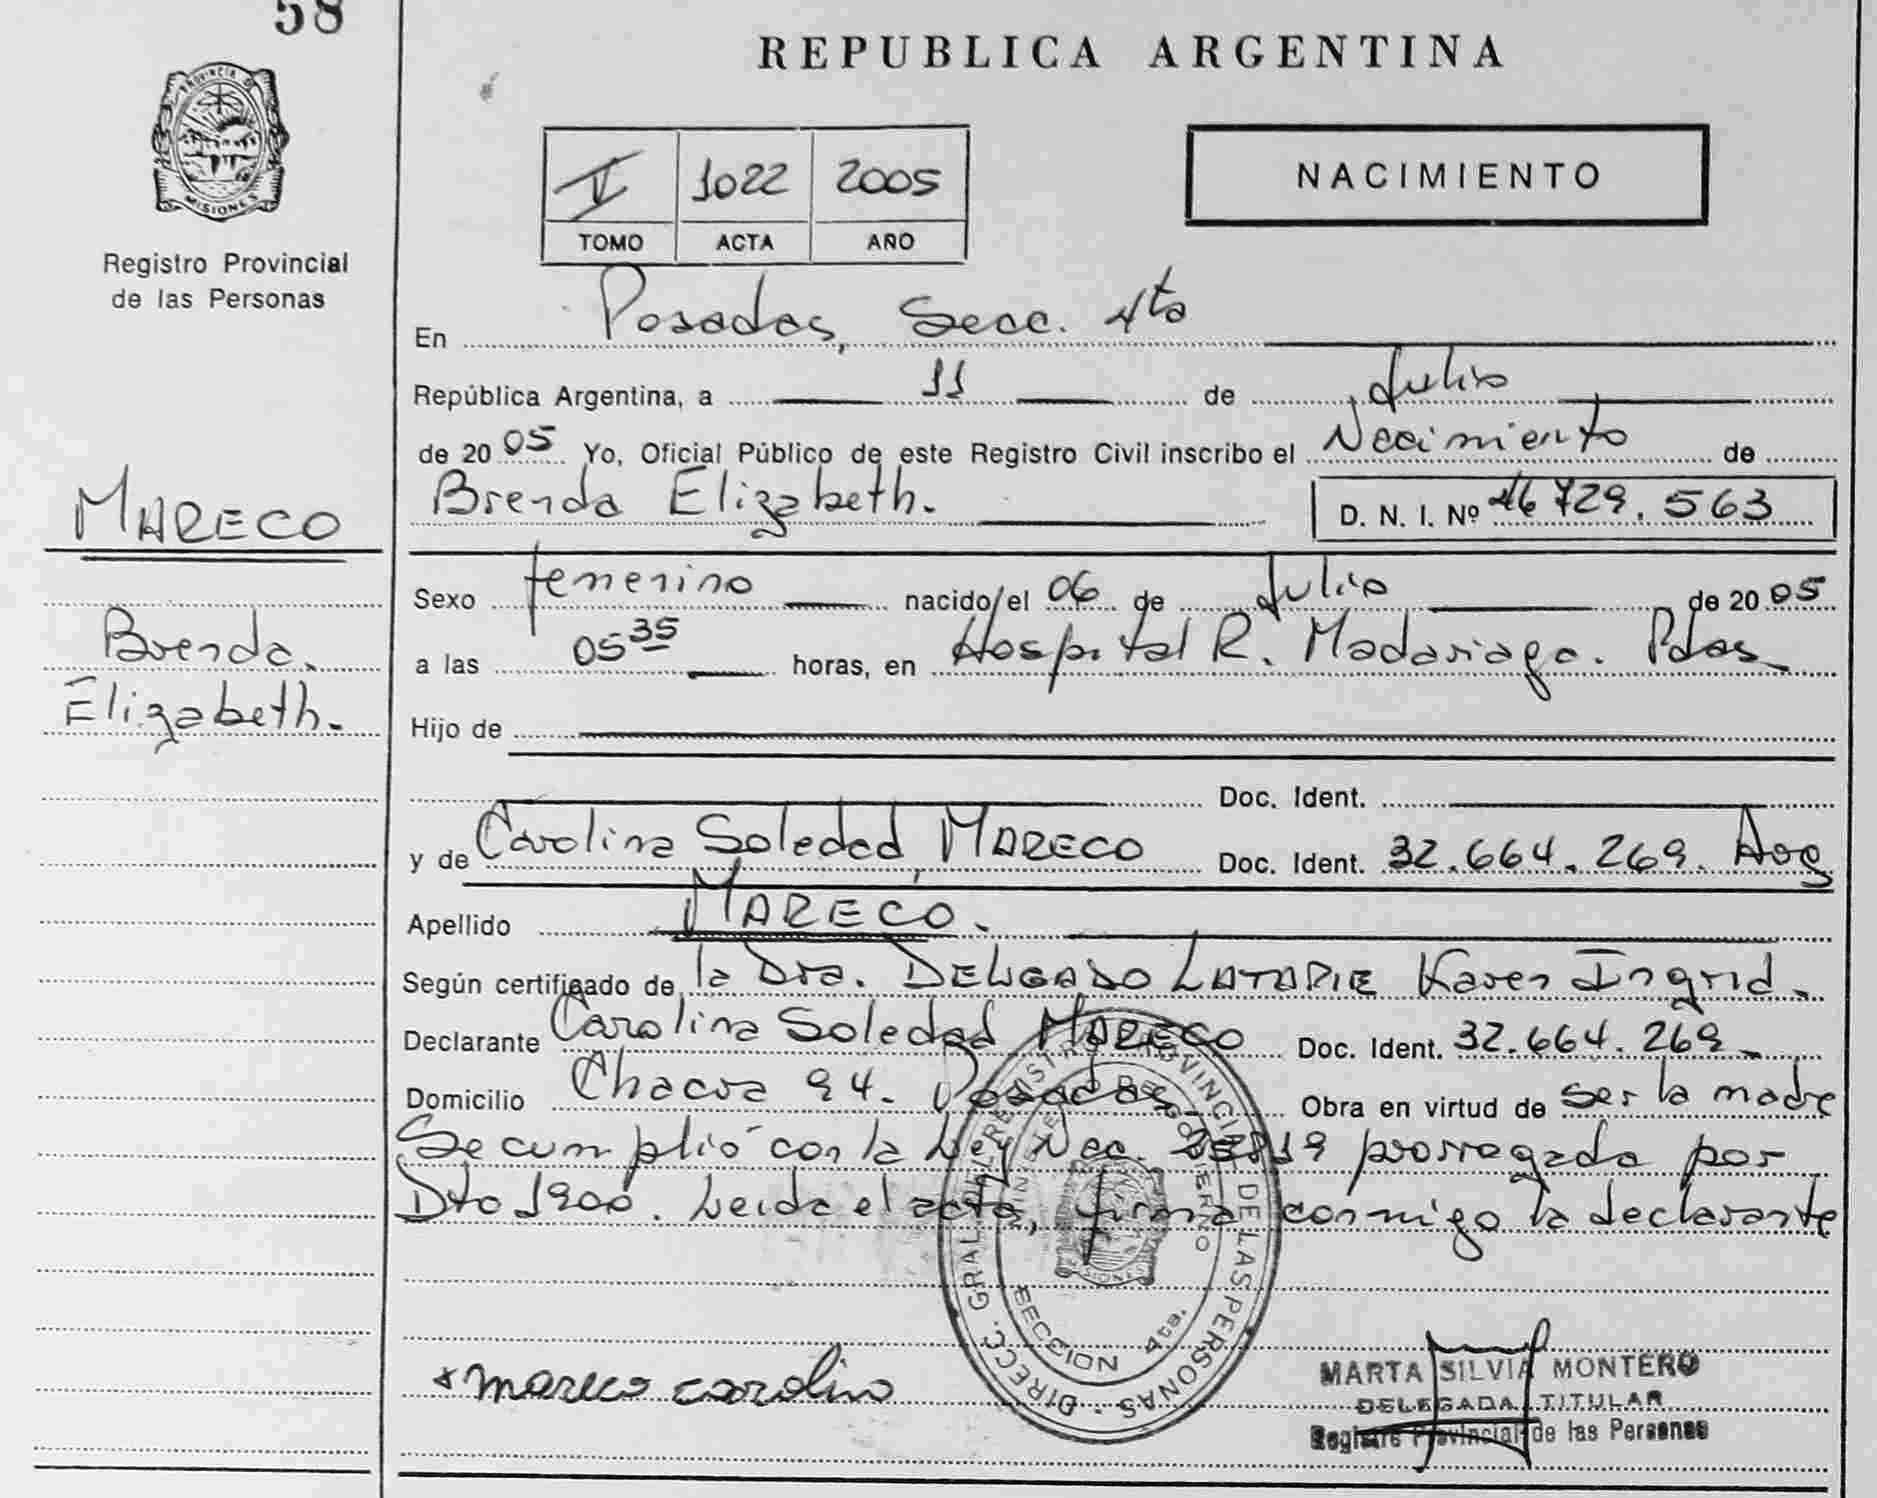 58
PROVINCIA DE MISIONES
Registro Provincial
de las Personas
MARECO
Brenda
Elizabeth.
REPUBLICA ARGENTINA
1022 2005
TOMO ACTA AÑO
NACIMIENTO
En Posadas, Secc. 4ta
República Argentina, a 11 de Julio
de 2005 Yo, Oficial Público de este Registro Civil inscribo el Nacimiento de
Brenda Elizabeth. D. N. I. Nº 46 729. 563
Sexo femenino nacido/el 06 de Julio de 2005
a las 05 35 horas, en Hospital R. Madariaga. Pdas
Hijo de
Doc. Ident.
y de Carolina Soledad MARECO Doc. Ident. 32.664.269. Arg
Apellido MARECO.
Según certificado de la Dra. DELGADO LATAPIE Karen Ingrid.
Declarante Carolina Soledad MARECO Doc. Ident. 32.664.269
Domicilio Chacra 94. Posadas Obra en virtud de ser la madre
Se cumplió con la Ley Nac. prorrogada por
Dto 1900. Leida el acta, firma conmigo la declarante
DIRECC. GRAL. DEL REGISTRO PROVINCIAL DE LAS PERSONAS
MINISTERIO DE GOBIERNO
SECCION 4ta.
MISIONES
x mareco carolina
MARTA SILVIA MONTERO
DELEGADA TITULAR
Registro Provincial de las Personas